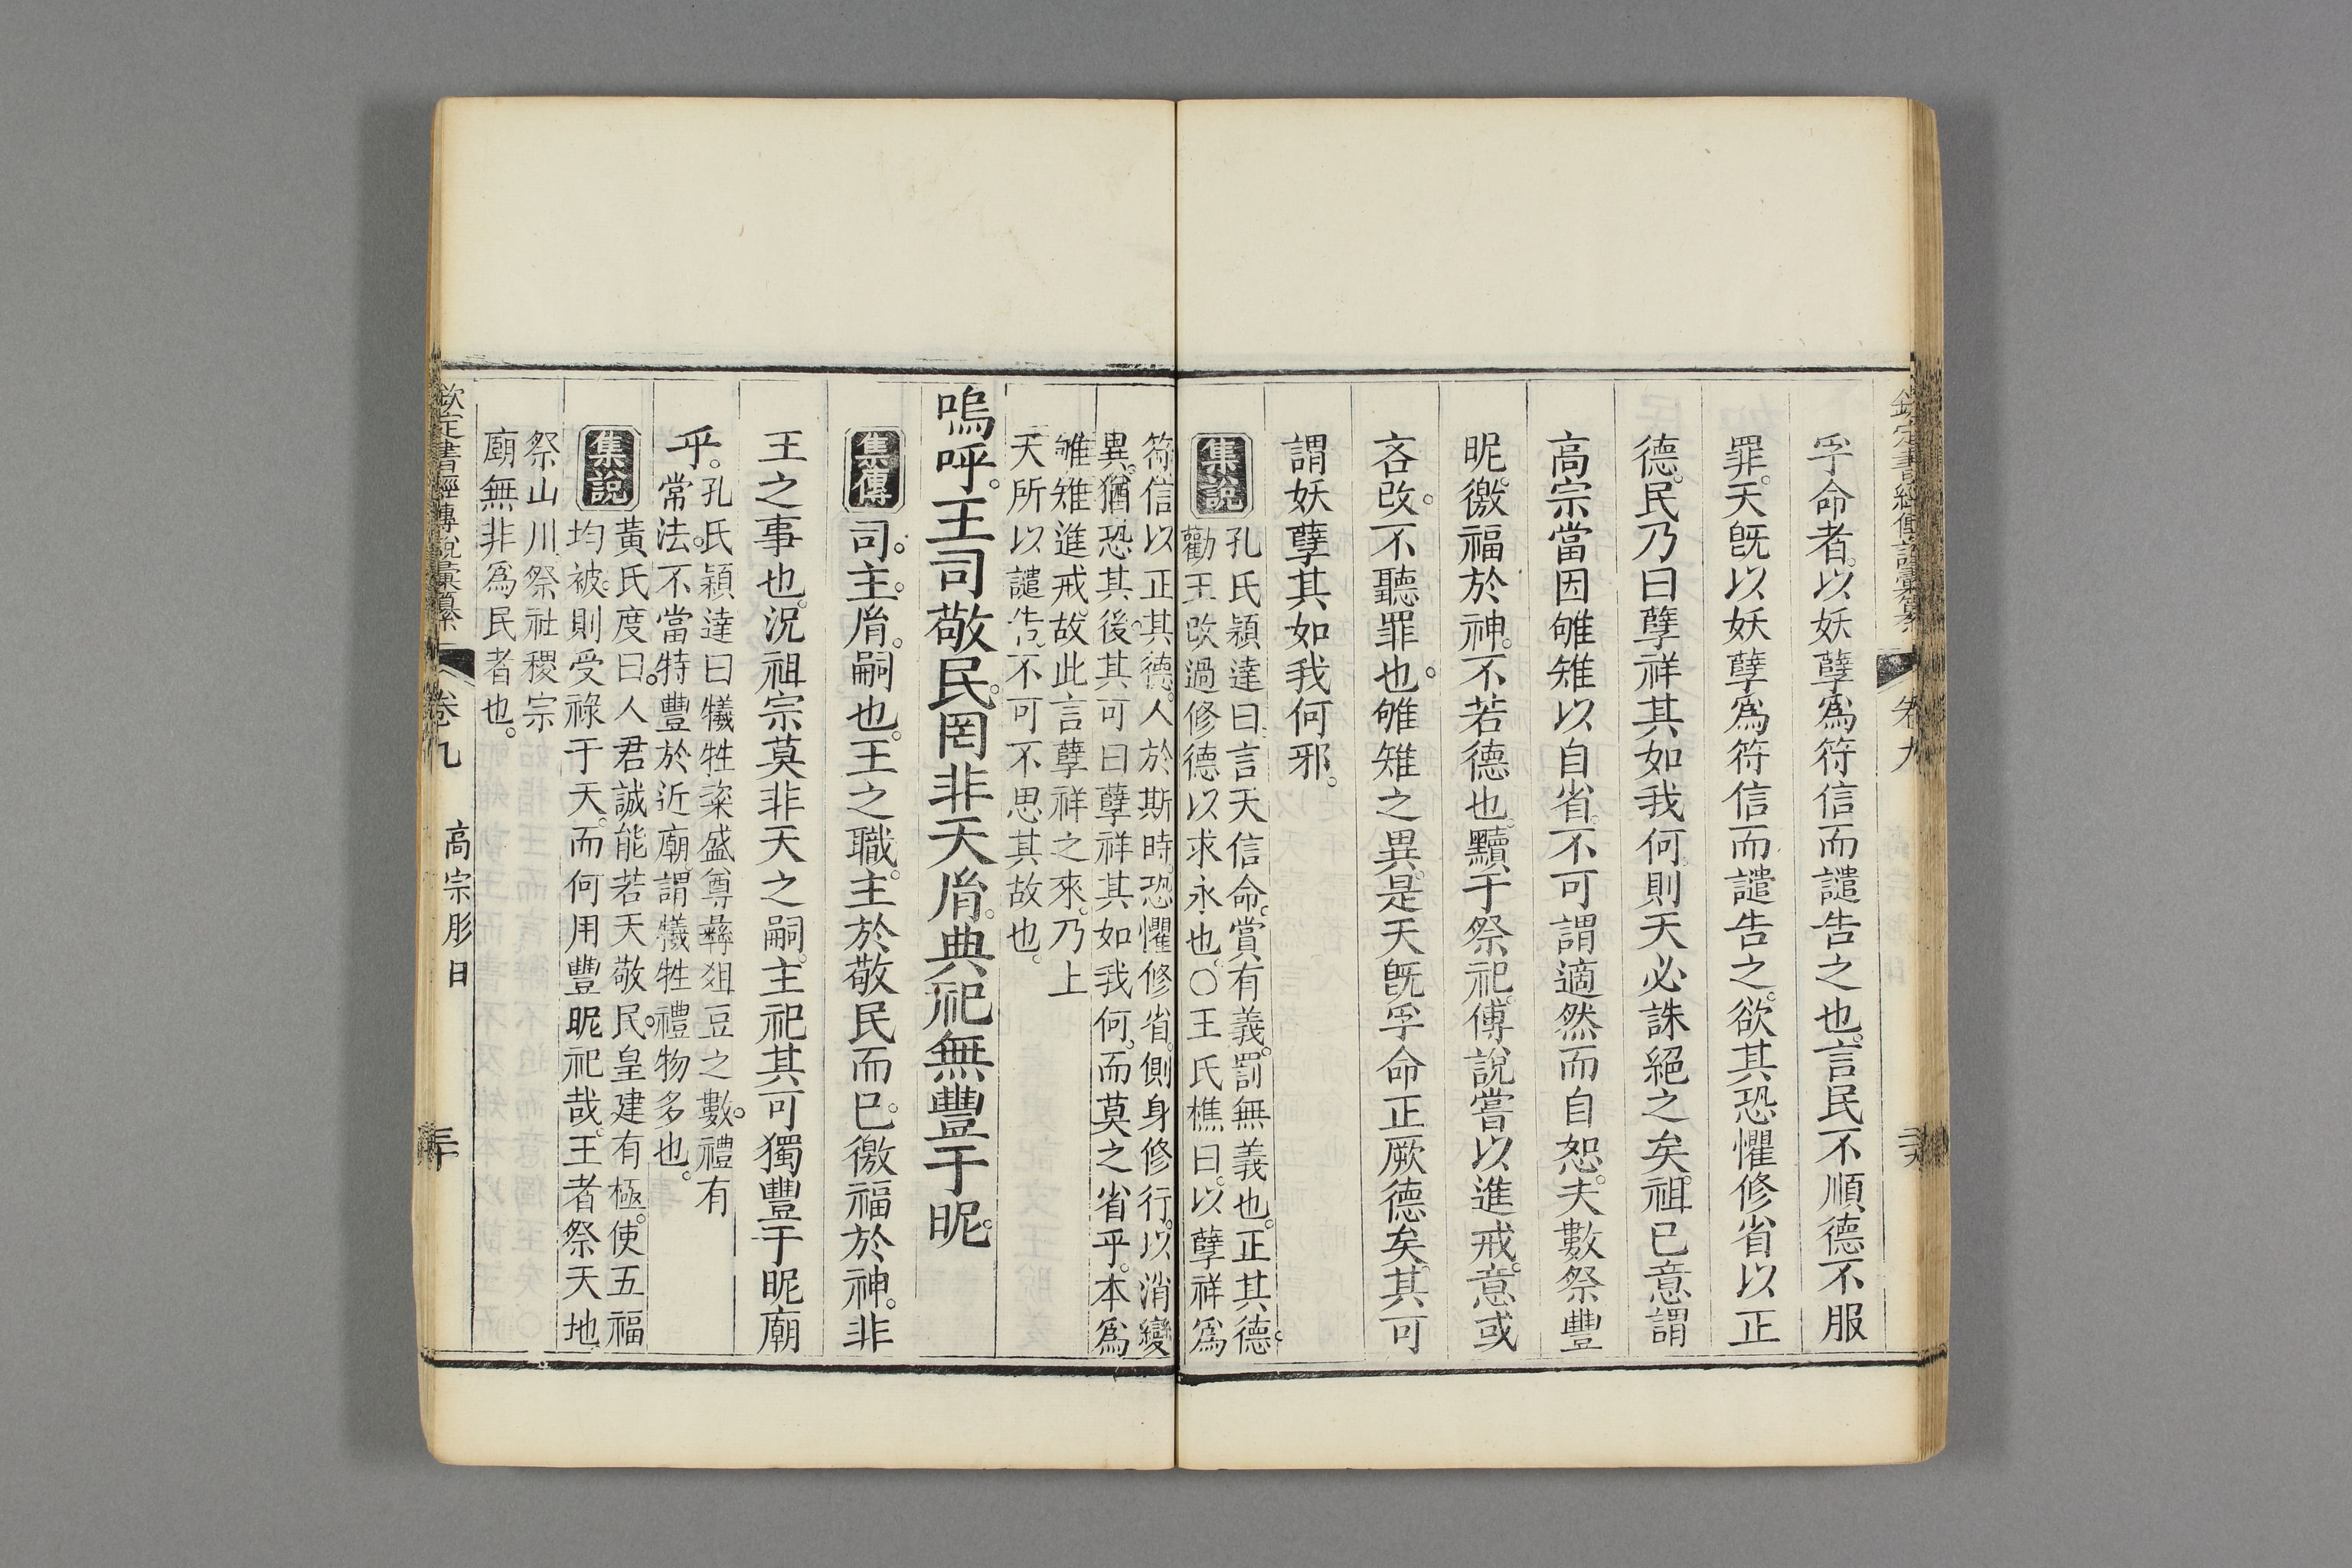 欽定書經傳說彙纂 卷九
孚命者。以妖孽爲符信而譴告之也。言民不順德不服
罪。天旣以妖孽爲符信而譴告之。欲其恐懼修省以正
德。民乃曰孽祥其如我何則天必誅絕之矣。祖已意謂
高宗當因雊雉以自省。不可謂適然而自恕。夫數祭豐
昵。徼福於神。不若德也。黷于祭祀。傅說嘗以進戒。意或
吝改。不聽罪也。雊雉之異。是天旣孚命正厥德矣。其可
謂妖孽其如我何邪。
集說
孔氏穎達曰。言天信命。賞有義。罰無義也。正其德。
勸王改過修德以求永也。〇王氏樵曰。以孽祥爲
符信以正其德。人於斯時。恐懼修省。側身修行。以消變
異。猶恐其後。其可曰孽祥其如我何。而莫之省乎。本爲
雊雉進戒。故此言孽祥之來。乃上
天所以譴告。不可不思其故也。
嗚呼。王司敬民。罔非天胤。典祀無豐于昵。
集傳
司。主。胤。嗣也。王之職。主於敬民而已。徼福於神。非
王之事也。況祖宗莫非天之嗣。主祀其可獨豐于昵廟
乎。
孔氏穎達曰犧牲粢盛尊彝俎豆之數。禮有
常法。不當特豐於近廟。謂犧牲禮物多也。
集說
黃氏度曰。人君誠能若天敬民。皇建有極。使五福
均被。則受祿于天。而何用豐昵祀哉。王者祭天地
祭山川祭社稷宗
廟無非爲民者也。
欽定書經傳說彙纂 卷九 高宗肜日 三十